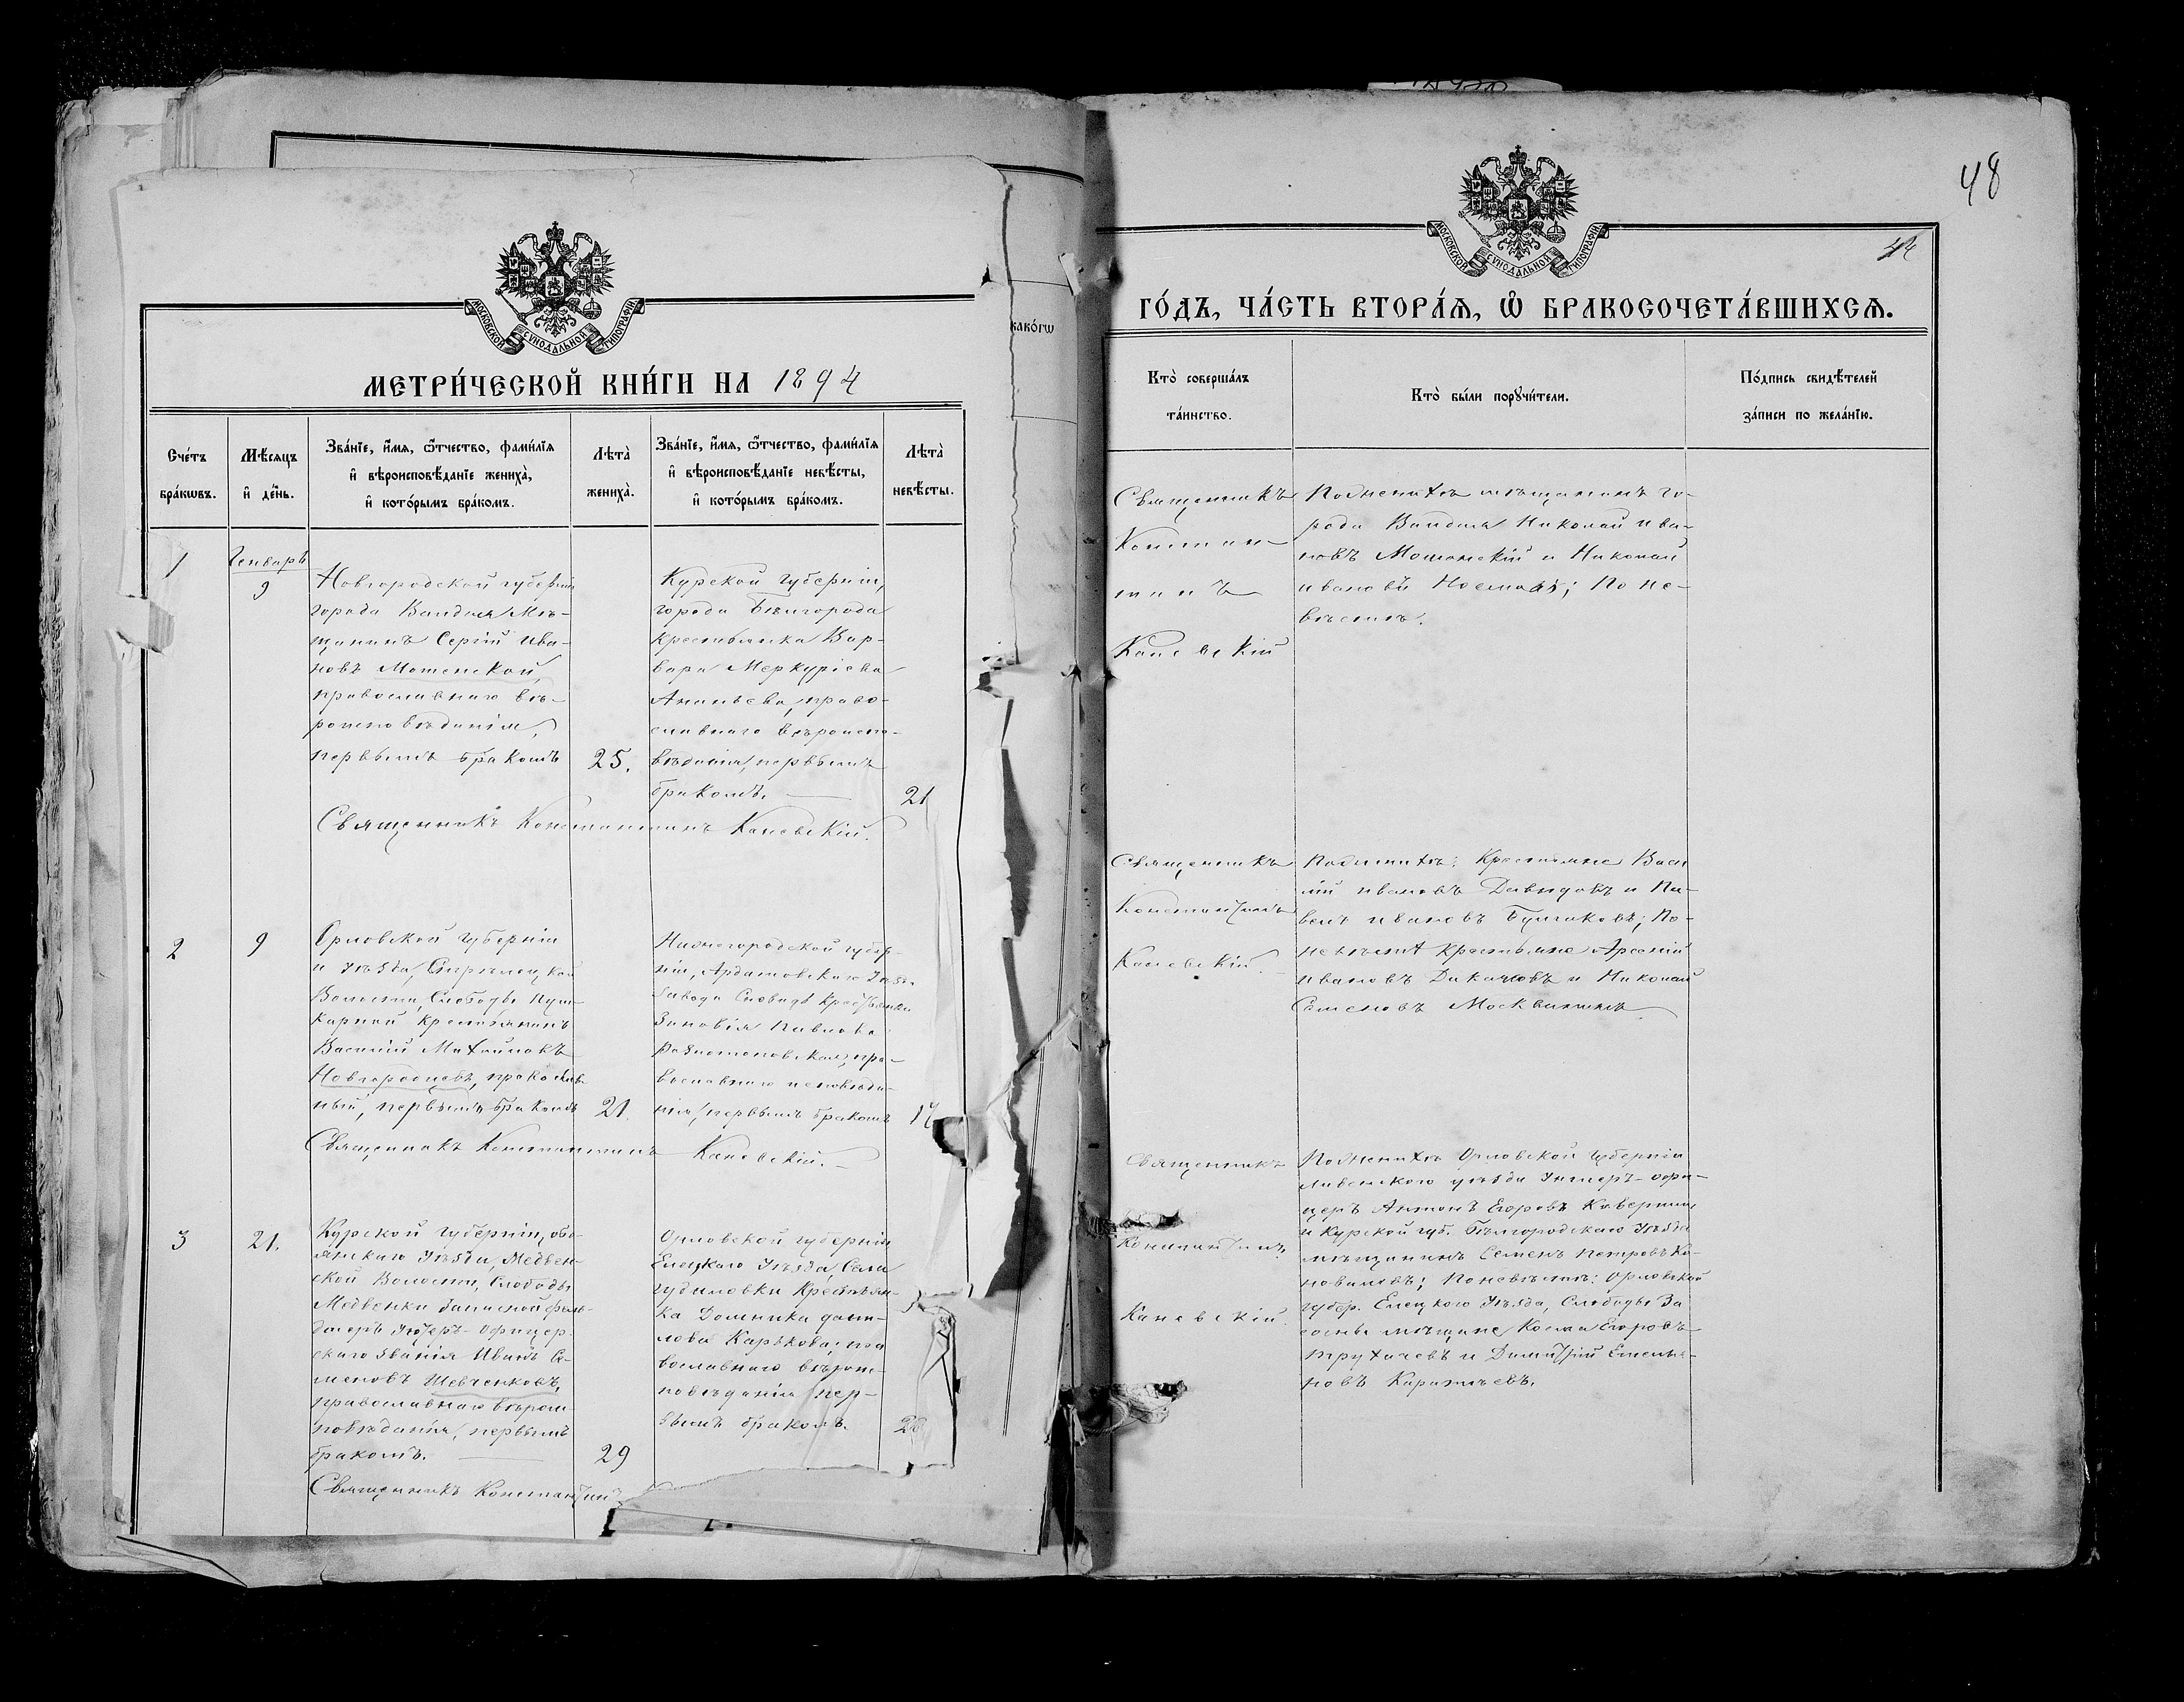 МОСКОВСКОЙ СѴНОДАЛЬНОЙ ТИПОГРАФІИ
МЕТРИ́ЧЕСКОЙ КНИ́ГИ НА 1894
Сче́тъ бра́кѡвъ.
Мѣ́сяцъ и҆ де́нь.
Зва́нїе, и҆́мѧ, ѻ҆́тчество, фами́лїѧ
и҆ вѣроисповѣ́данїе жениха̀,
и҆ кото́рымъ бра́комъ.
Лѣта̀ жениха̀.
Зва́нїе, и҆́мѧ, ѻ҆́тчество, фами́лїѧ
и҆ вѣроисповѣ́данїе невѣ́сты,
и҆ кото́рымъ бра́комъ.
Лѣта̀ невѣ́сты.
1
Генварь
9
Новгородской губерніи
города Валдая Мѣ-
щанинъ Сергій Ива-
новъ Мошенской,
православнаго вѣ-
роисповѣданія,
первымъ бракомъ
25.
Курской Губерніи,
города Бѣлгорода
крестьянка Вар-
вара Меркуріева
Ананьева, право-
славнаго вѣроиспо-
вѣданія, первымъ
бракомъ.
21
Священникъ Константинъ Каневскій.
2
9
Орловской губерніи
и Уѣзда,
Волости, Слободы Пуш-
карной крестьянинъ
Василій Михайловъ
Новгородцевъ, православ-
ный, первымъ бракомъ
21.
Нижегородской губер-
ніи, Ардатовскаго Уѣзда
завода крестьянка
Зиновія Павлова
пра-
вославнаго исповѣда-
нія, первымъ бракомъ
17
Священникъ Константинъ Каневскій.
3
21.
Курской Губерніи, обо-
янскаго Уѣзда, Медвен-
ской Волости, Слободы
Медвенки запасной фель-
дшеръ Унтеръ-офицер-
скаго званія Иванъ Се-
меновъ Шевченковъ,
православнаго вѣроис-
повѣданія, первымъ
бракомъ.
29
Орловской губерніи
Елецкаго Уѣзда, Села
крестьян-
ка Домника
Карькова; пра
вославнаго вѣроис-
повѣданія пер-
вымъ бракомъ.
28
Священникъ Константинъ
како́гѡ
48
МОСКОВСКОЙ СѴНОДАЛЬНОЙ ТИПОГРАФІИ
ГО́ДЪ, ЧА́СТЬ ВТОРА́Ѧ, Ѽ БРАКОСОЧЕТА́ВШИХСѦ.
Кто̀ соверша́лъ
та́инство.
Кто̀ бы́ли порꙋчи́тели.
По́дпись свидѣ́телей
за́писи по жела́нїю.
Священникъ
Констан-
тинъ
Каневскій
По женихѣ мѣщане го-
рода Валдая Николай Ива-
новъ Мошенскій и Николай
Ивановъ по не-
вѣстѣ.
Священникъ
Константинъ
Каневскій.
По женихѣ: Крестьяне Васи
лій Ивановъ Давыдовъ и Па-
велъ Ивановъ Булгаковъ; по-
невѣстѣ крестьяне Арсеній
Ивановъ и Николай
Семеновъ Москвитинъ
Священникъ
Константинъ
Каневскій.
По женихѣ Орловской Губерніи
Ливенскаго уѣзда Унтеръ-офи-
церъ Антонъ Егоровъ Каверинъ
и Курской губ. Бѣлгородскаго Уѣзда
мѣщанинъ Семенъ Петровъ Ко-
новаловъ; По невѣстѣ: Орловской
губер. Елецкаго Уѣзда, Слободы За
мѣщане Косма Егоровъ
Трухачевъ и Димитрій Емелья-
новъ